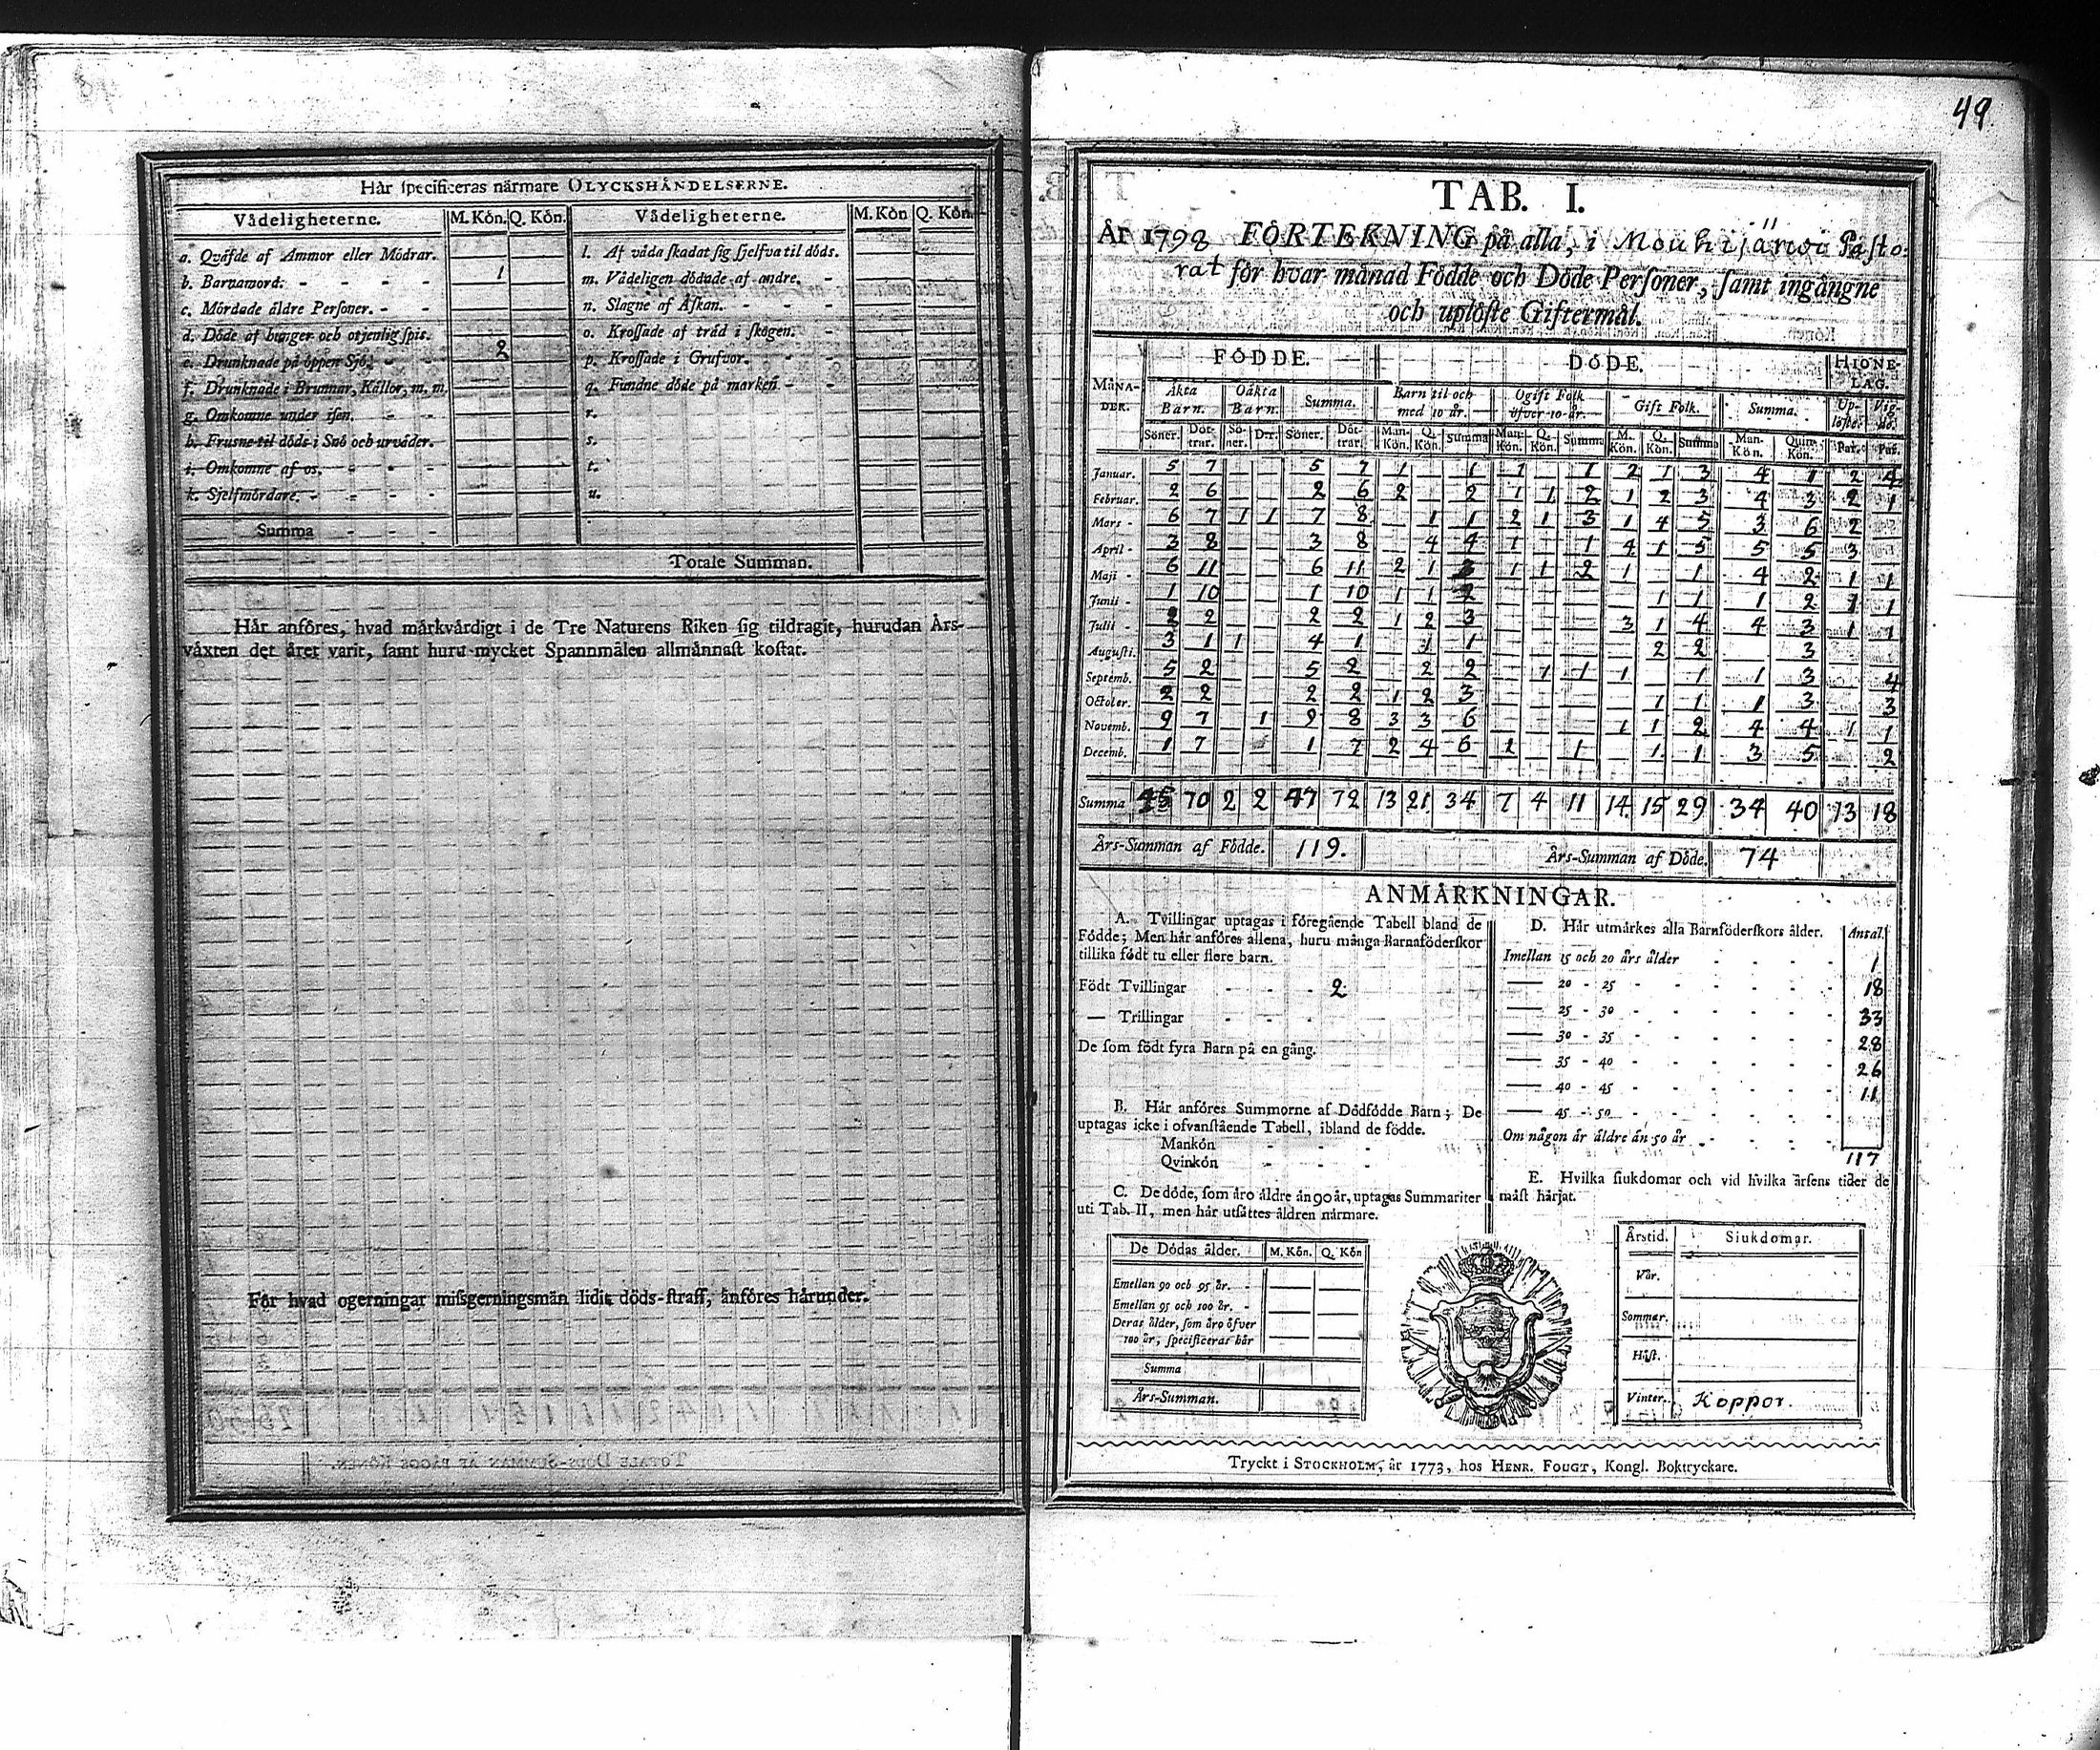 49.
Hår ſpecificeras närmare OLYCKSHÅNDELSERNE.
Vådeligheterne. M. Kôn. Q. Kôn. Vådeligheterne. M. Kôn Q. Kôn.
a. Qväfde af Ammor eller Môdrar. l. Af våda ſkadat ſig ſjelfva til döds.
b. Barnamord. 1 m. Vådeligen dödade af andre.
c. Môrdade äldre Perſoner. n. Slagne af Åſkan.
d. Döde af hunger och otjenlig ſpis. o. Kroſſade af träd i ſkogen.
e. Drunknade på öppen Sjö. 2 p. Kroſſade i Grufvor.
f. Drunknade i Brunnar, Källor, m. m. q. Fundne döde på marken.
g. Omkomne under iſen. r.
h. Fruſne til döds i Snö och urväder. s.
i. Omkomne af os. t.
k. Sjelfmördare. u.
Summa
Totale Summan.
Hår anfôres, hvad mårkvårdigt i de Tre Naturens Riken ſig tildragit, hurudan Års-
våxten det året varit, ſamt huru mycket Spannmålen allmånnaſt koſtat.
Fôr hvad ogerningar miſsgerningsmän lidit döds-ſtraff, anfôres hårunder.
TAB. I.
År 1798 FÔRTEKNING på alla, i Mouhijärwi Paſto-
rat fôr hvar månad Fôdde och Dôde Perſoner, ſamt ingångne
och uplôſte Giftermål.
FÔDDE. DÔDE. HIONE-
LAG.
MÅNA-
DER. Äkta
Barn. Oäkta
Barn. Summa. Barn til och
med 10 år. Ogift Folk
öfver 10 år. Gift Folk. Summa. Up-
lôſte. Vig-
de.
Sôner. Dôt-
trar. Sô-
ner. Dtr. Sôner. Dôt-
trar. Man-
Kôn. Q.
Kôn. Summa Man-
Kôn. Q.
Kôn. Summa M.
Kôn. Q.
Kôn. Summa Man-
Kôn. Quin-
Kôn. Par. Par.
Januar. 5 7 5 7 1 1 1 1 2 1 3 4 1 2 4
Februar. 2 6 2 6 2 2 1 1 2 1 2 3 4 3 2 1
Mars 6 7 1 1 7 8 1 1 2 1 3 1 4 5 3 6 2
April 3 8 3 8 4 4 1 1 4 1 5 5 5 3
Maji 6 11 6 11 2 1 3 1 1 2 1 1 4 2 1 1
Junii 1 10 1 10 1 1 2 1 1 1 2 1 1
Julii 2 2 2 2 1 2 3 3 1 4 4 3 1 1
Auguſti. 3 1 1 4 1 1 1 2 2 3
Septemb. 5 2 5 2 2 2 1 1 1 1 1 3 4
Octoler. 2 2 2 2 1 2 3 1 1 1 3 3
Novemb. 9 7 1 9 8 3 3 6 1 1 2 4 4 1 1
Decemb. 1 7 1 7 2 4 6 1 1 1 1 3 5 2
Summa 45 70 2 2 47 72 13 21 34 7 4 11 14 15 29 34 40 13 18
Års-Summan af Fôdde. 119. Års-Summan af Dôde. 74
ANMÅRKNINGAR.
A. Tvillingar uptagas i fôregående Tabell bland de
Fôdde; Men hår anfôres allena, huru många Barnaföderſkor
tillika fôdt tu eller flere barn.
Födt Tvillingar 2
— Trillingar
De ſom födt fyra Barn på en gång.
B. Hår anfôres Summorne af Dôdfôdde Barn; De
uptagas icke i ofvanſtående Tabell, ibland de födde.
Mankôn
Qvinkôn
C. De dôde, ſom åro åldre ån 90 år, uptagas Summariter
uti Tab. II, men hår utſåttes åldren nårmare.
De Dôdas ålder. M. Kôn. Q. Kôn
Emellan 90 och 95 år.
Emellan 95 och 100 år.
Deras ålder, ſom åro ôfver
100 år, ſpecificeras hår
Summa
Års-Summan.
D. Hår utmårkes alla Barnföderſkors ålder. Antal.
Imellan 15 och 20 års ålder 1
— 20 - 25 18
— 25 - 30 33
— 30 - 35 28
— 35 - 40 26
— 40 - 45 11
— 45 - 50
Om någon är äldre än 50 år
117
E. Hvilka ſiukdomar och vid hvilka årſens tider de
måſt hårjat.
Årstid. Siukdomar.
Vår.
Sommar.
Håſt.
Vinter. Koppor.
Tryckt i STOCKHOLM, år 1773, hos HENR. FOUGT, Kongl. Boktryckare.